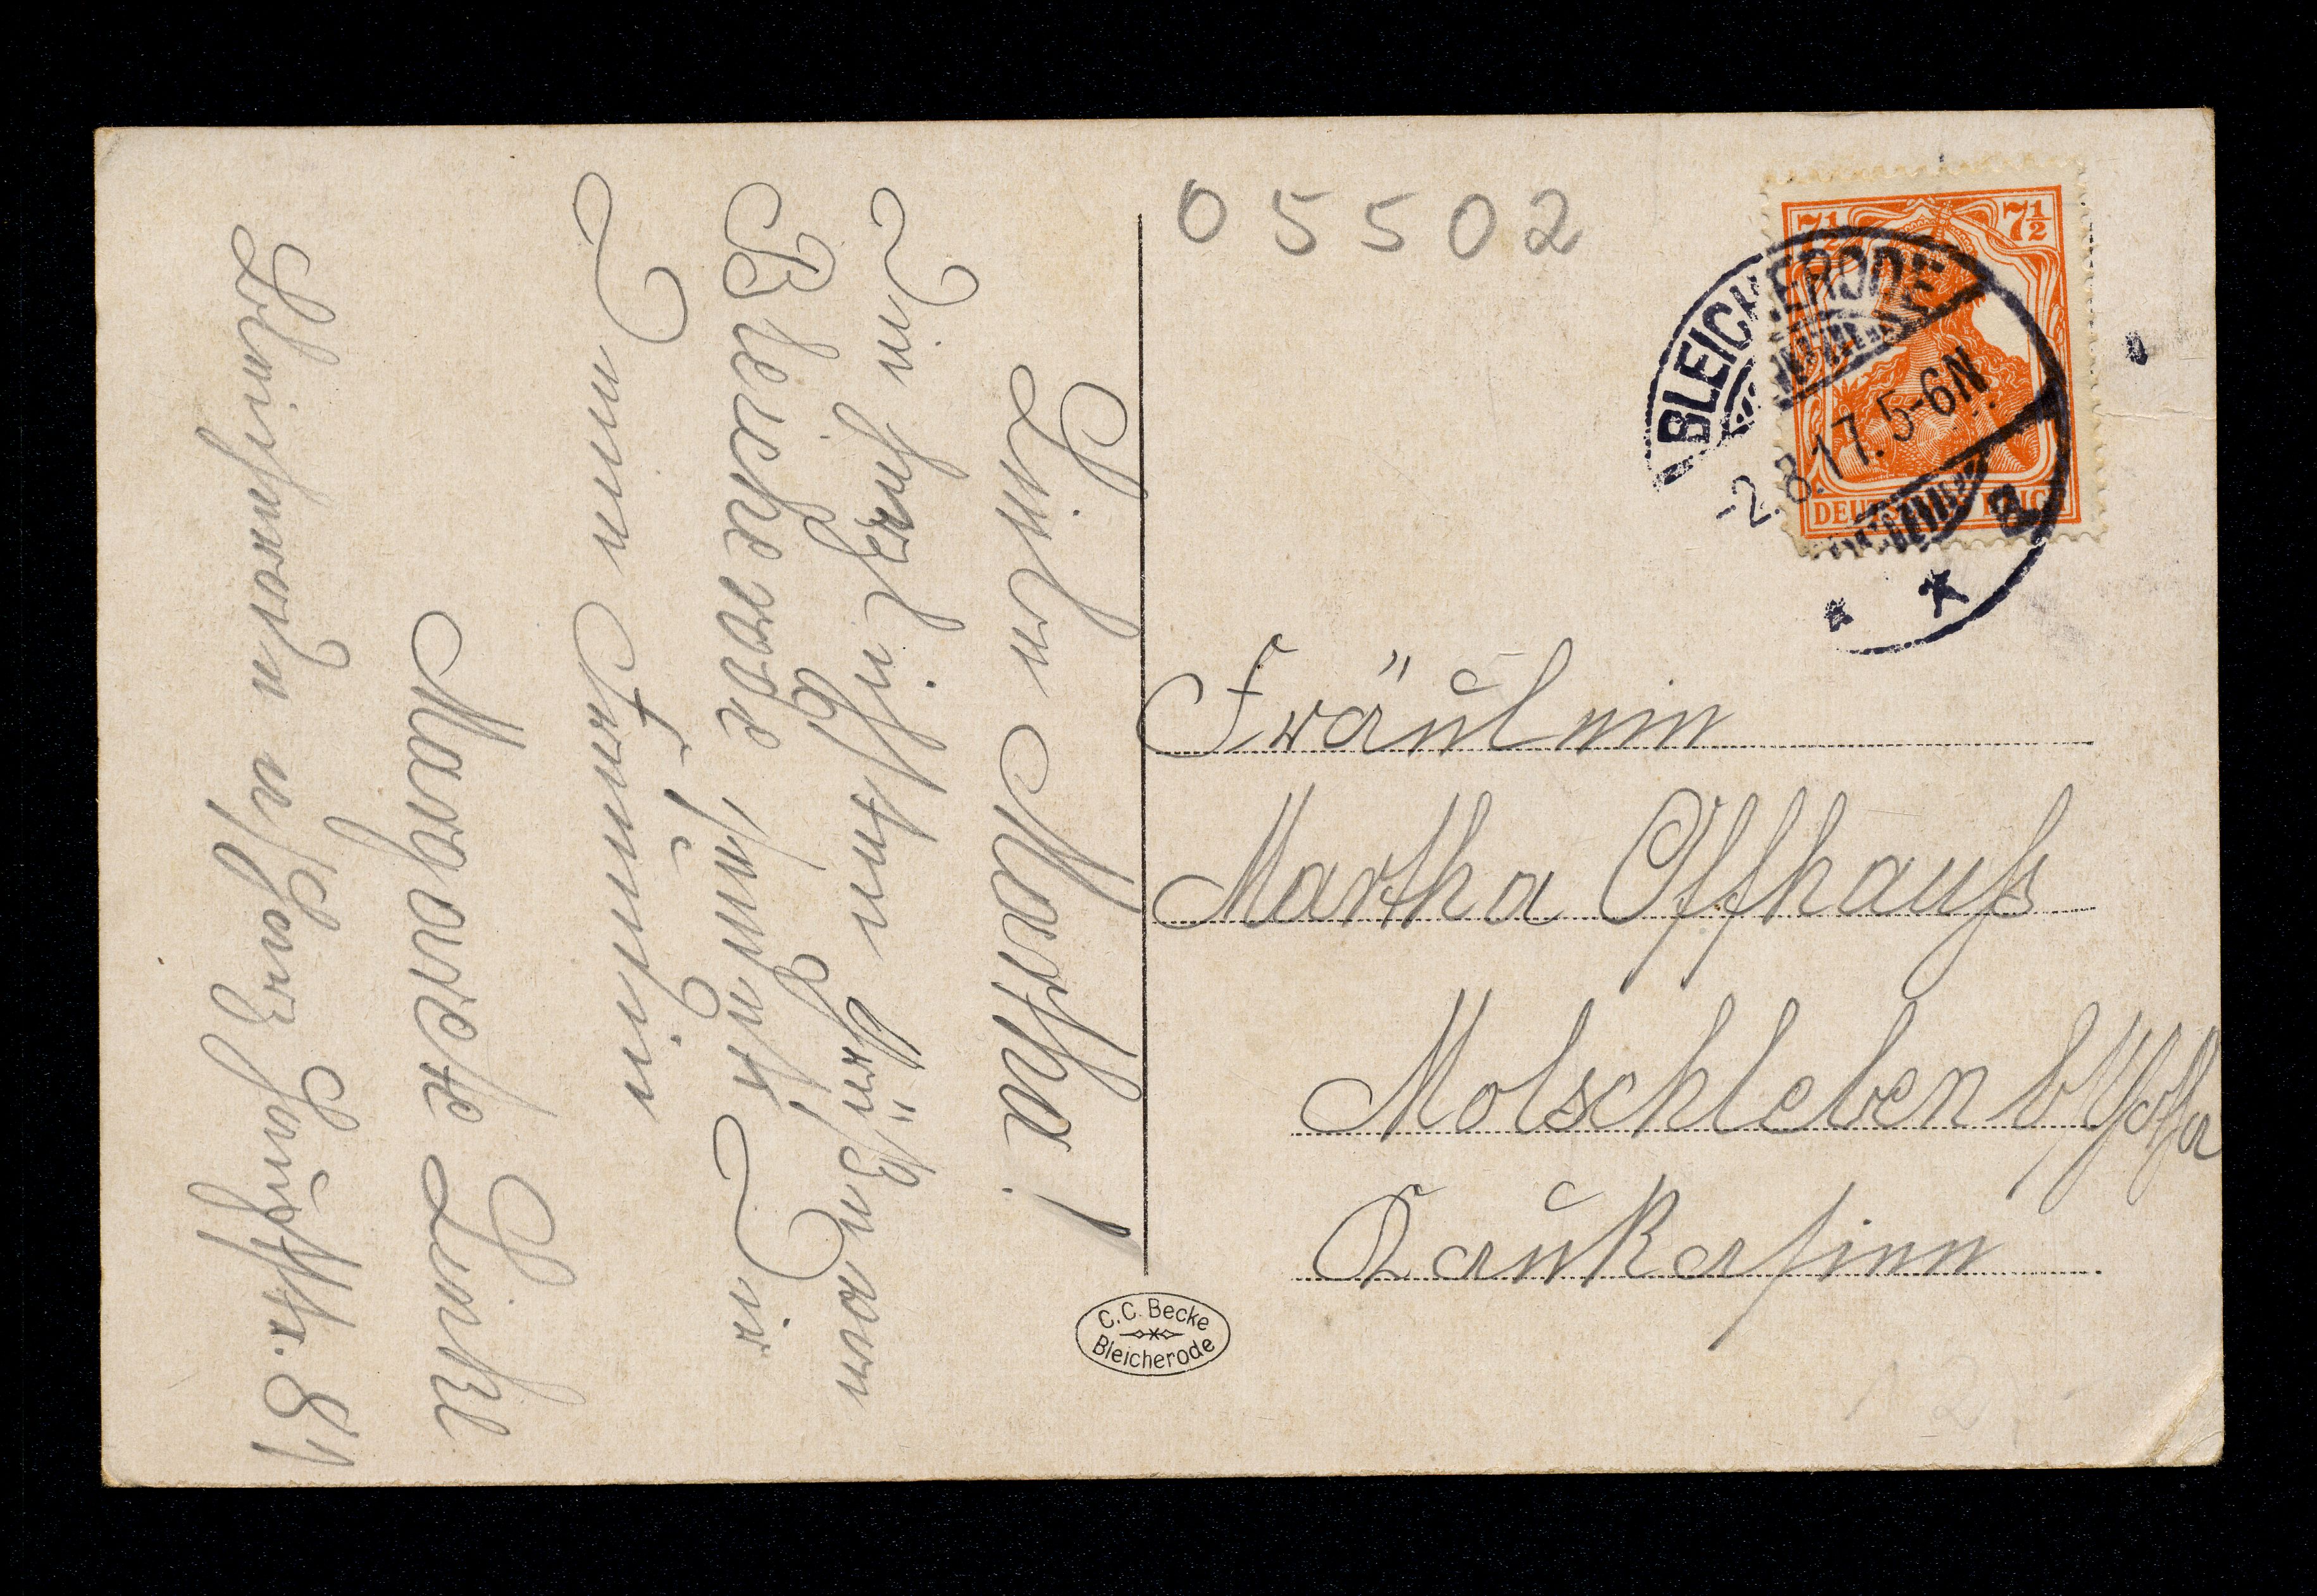 Liebe Martha!
Die herzlichsten Grüße
aus
Bleicherode sendet Dir
Deine Freundin
Margarete Henkel
Bleicherode a/Harz Hauptstr. 81
05502
7½ 7½
DEUTSCHES REICH
BLEICHERODE
-2.8.17.5-6N.
a
Fräulein
Martha Offhauß
Molschleben b/Gotha
C.C. Becke
Bleicherode